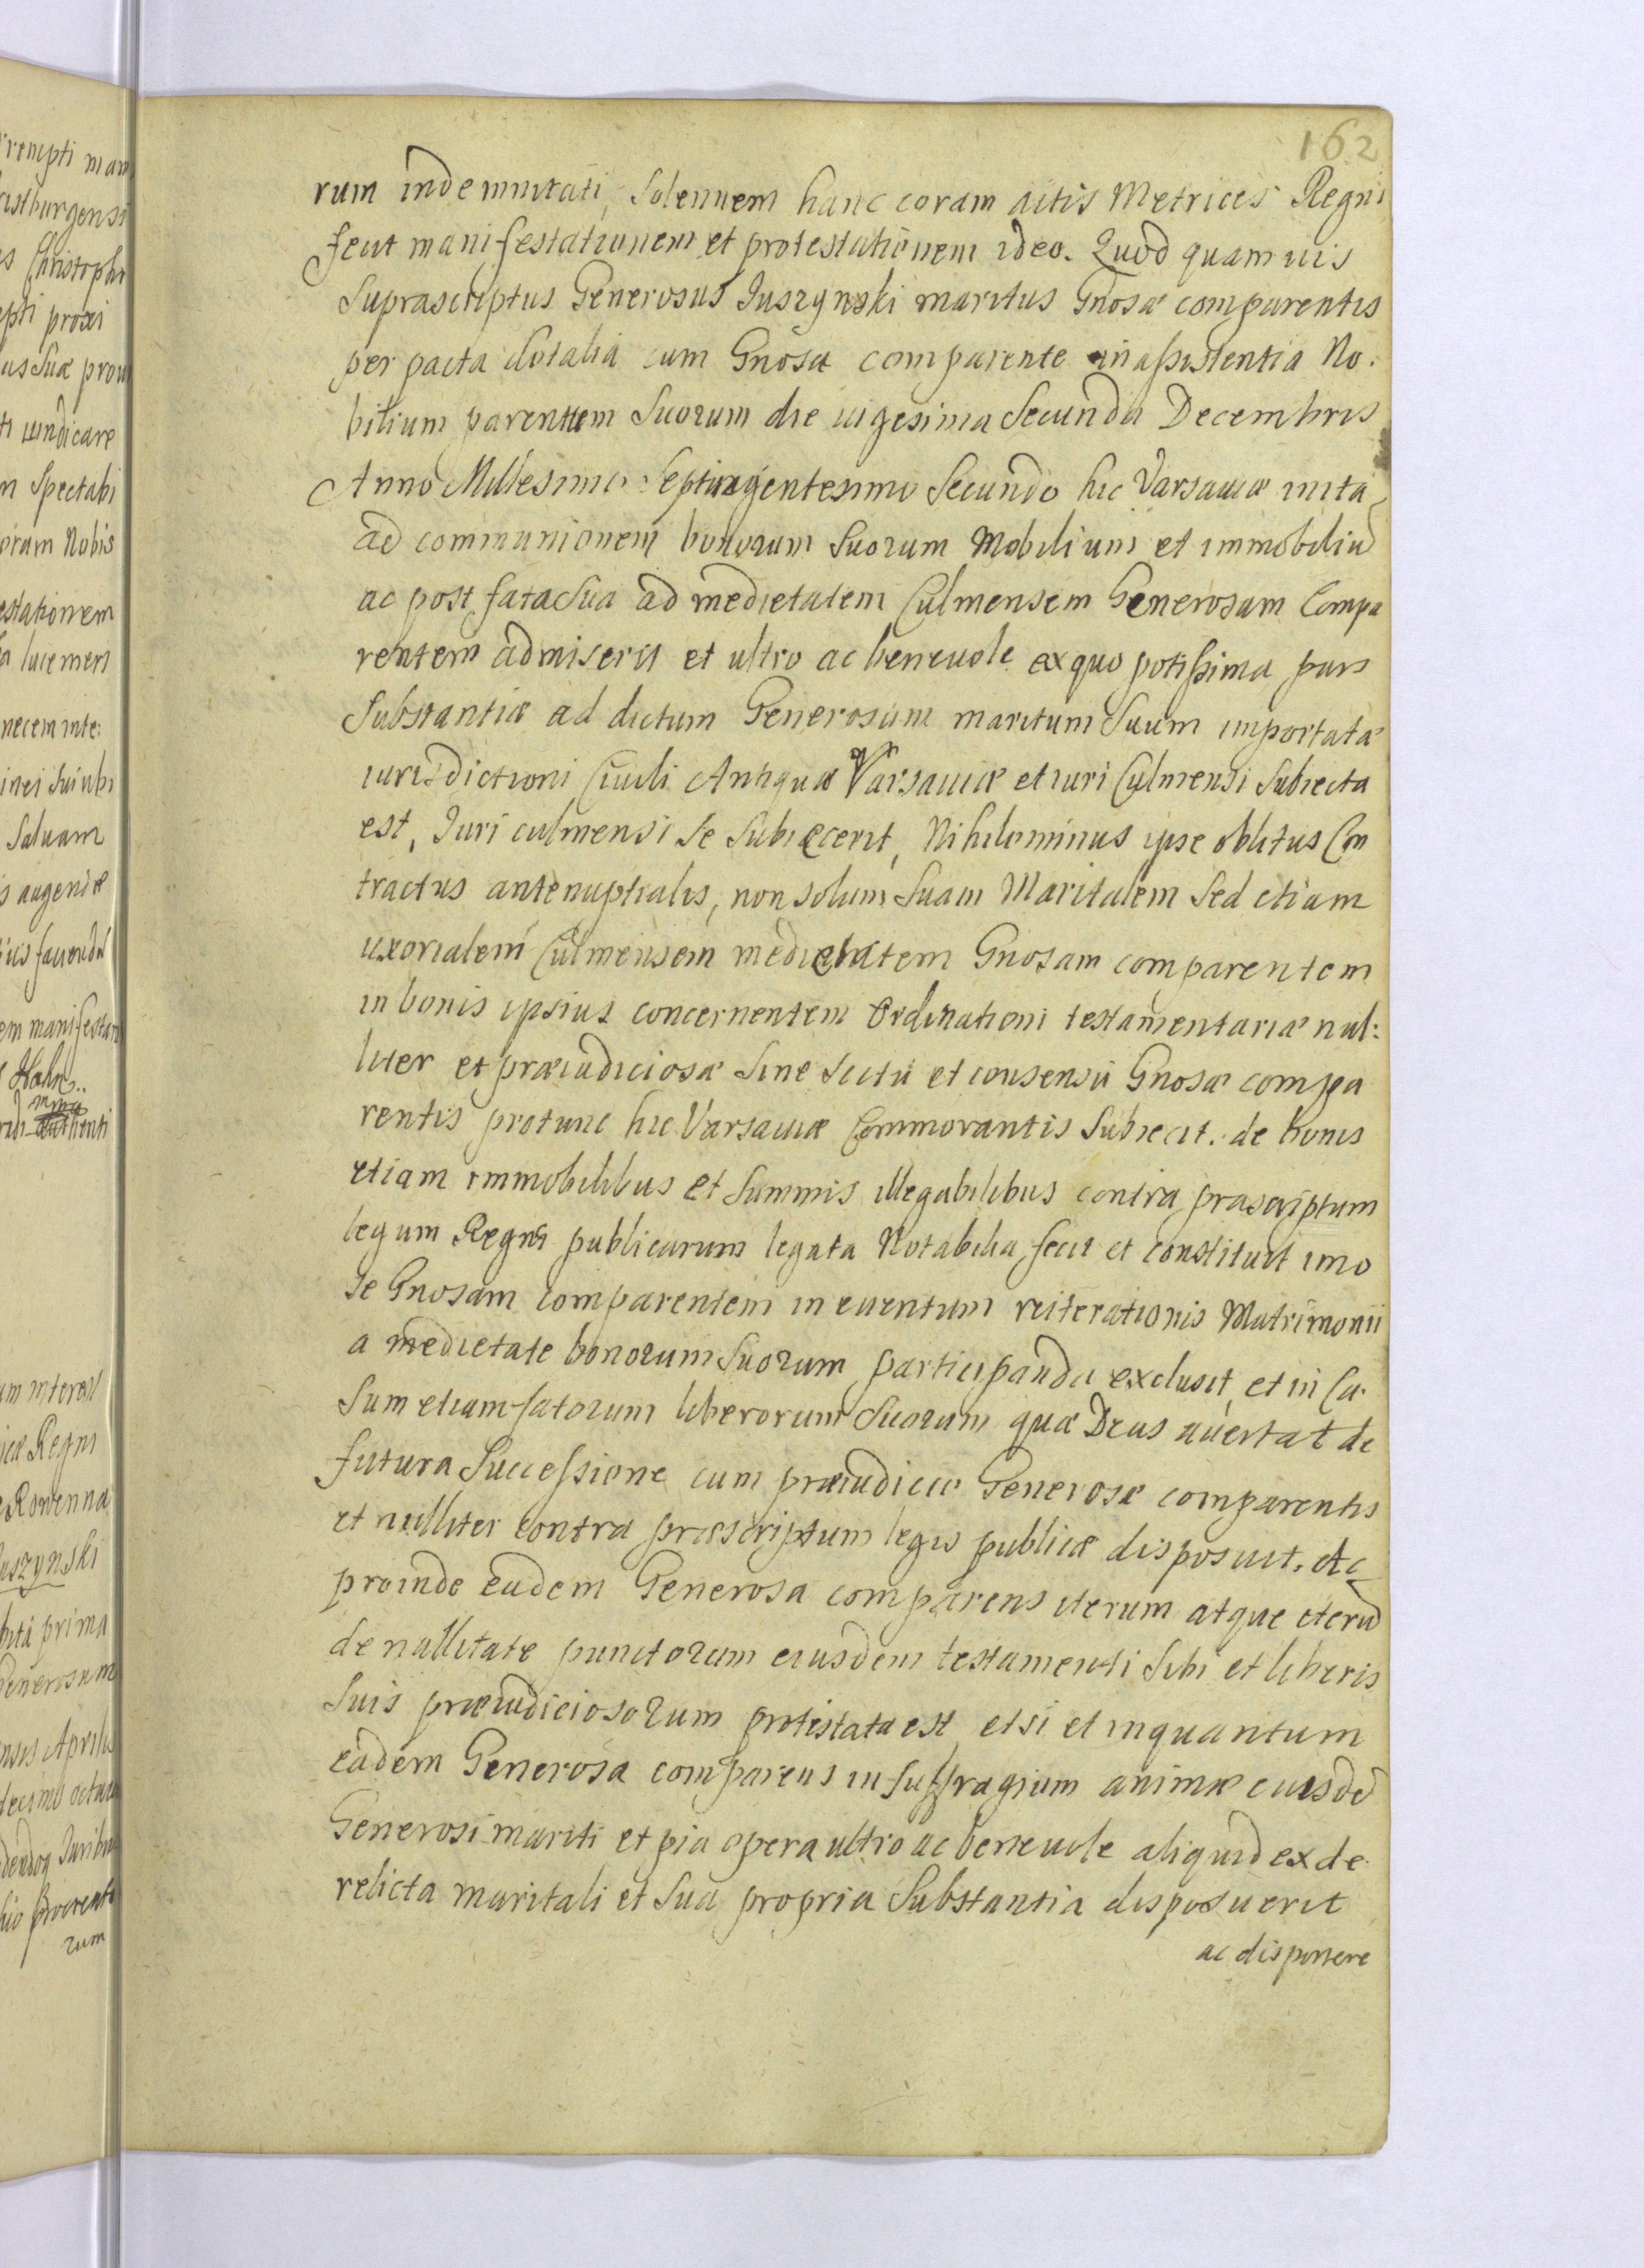 162
rum indemnitati, Solennem hanc coram actis Metrices Regni
fecit manifestationem et protestationem ideo. Quod quamuis
Suprascriptus Generosus Juszynski maritus Gnosæ comparentis
per pacta dotalia cum Gnosa comparente in assistentia No:
bilium parentum Suorum die uigesima Secunda Decembris
Anno Millesimo Septingentesimo Secundo hic Varsauiæ inita
ad communionem bonorum Suorum Mobilium et immobiliu
ac post fata Sua ad medietatem Culmensem Generosam Compa
rentem admiserit et ultro ac beneuole ex quo potissima pars
Substantiæ ad dictum Generosum maritum Suum importatæ
iurisdictioni Ciuili Antiquæ Varsauiæ et iuri Culmensi Subiecta
est, Juri culmensi se Subiecerit, Nihilominus ipse oblitus Con
tractus antenuptialis, non solum Suam Maritalem Sed etiam
uxorialem Culmensem medietatem Gnosam comparentem
in bonis ipsius concernentem Ordinationi testamentariæ nul:
liter et præiudiciosæ Sine Scitu et consensu Gnosæ compa
rentis protunc hic Varsauiæ Commorantis Subiecit. de bonis
etiam immobilibus et Summis illegabilibus contra præscriptum
legum Regni publicarum legata Notabilia fecit et constituit imo
se Gnosam comparentem in euentum reiterationis Matrimonii
a medietate bonorum Suorum participanda exclusit, et in Ca:
Sum etiam fatorum liberorum Suorum quæ Deus auertat de
futura Successione cum præiudicio Generosæ comparentis
et nulliter contra præscriptum legis publicæ disposuit. Ac
proinde eadem Generosa comparens iterum atque iteru
de nullitate punctorum eiusdem testamenti Sibi et liberis
Suis præiudiciosorum protestata est, et si et inquantum
eadem Generosa comparens in Suffragium animæ eiusde
Generosi mariti et pia opera ultro ac beneuole aliquid ex de
relicta maritali et Sua propria Substantia disposuerit
ac disponere